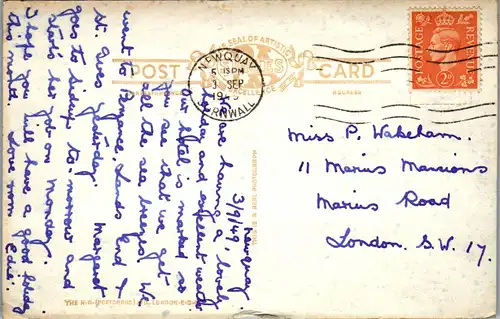 SEAL OF ARTISTIC
EXCELLENCE
POST CARD
CORRESPONDENCE
ADDRESS
NEWQUAY
5 15PM
3 SEP
1949
CORNWALL
POSTAGE REVENUE
2D
Newquay.
3/9/49.
We are having a lovely
holiday and excellent weather
Our hotel is marked so
you see that we get
all the sea breezes! We
went to Penzance, Lands End &
St. Ives yesterday. Margaret
goes to Bideford to-morrow and
starts her job on Monday.
I hope you will have a good holiday
this month. Love from Edie.
Miss P. Wakeham.
11 Marius Mansions
Marius Road
London. S.W. 17.
THIS IS A REAL PHOTOGRAPH